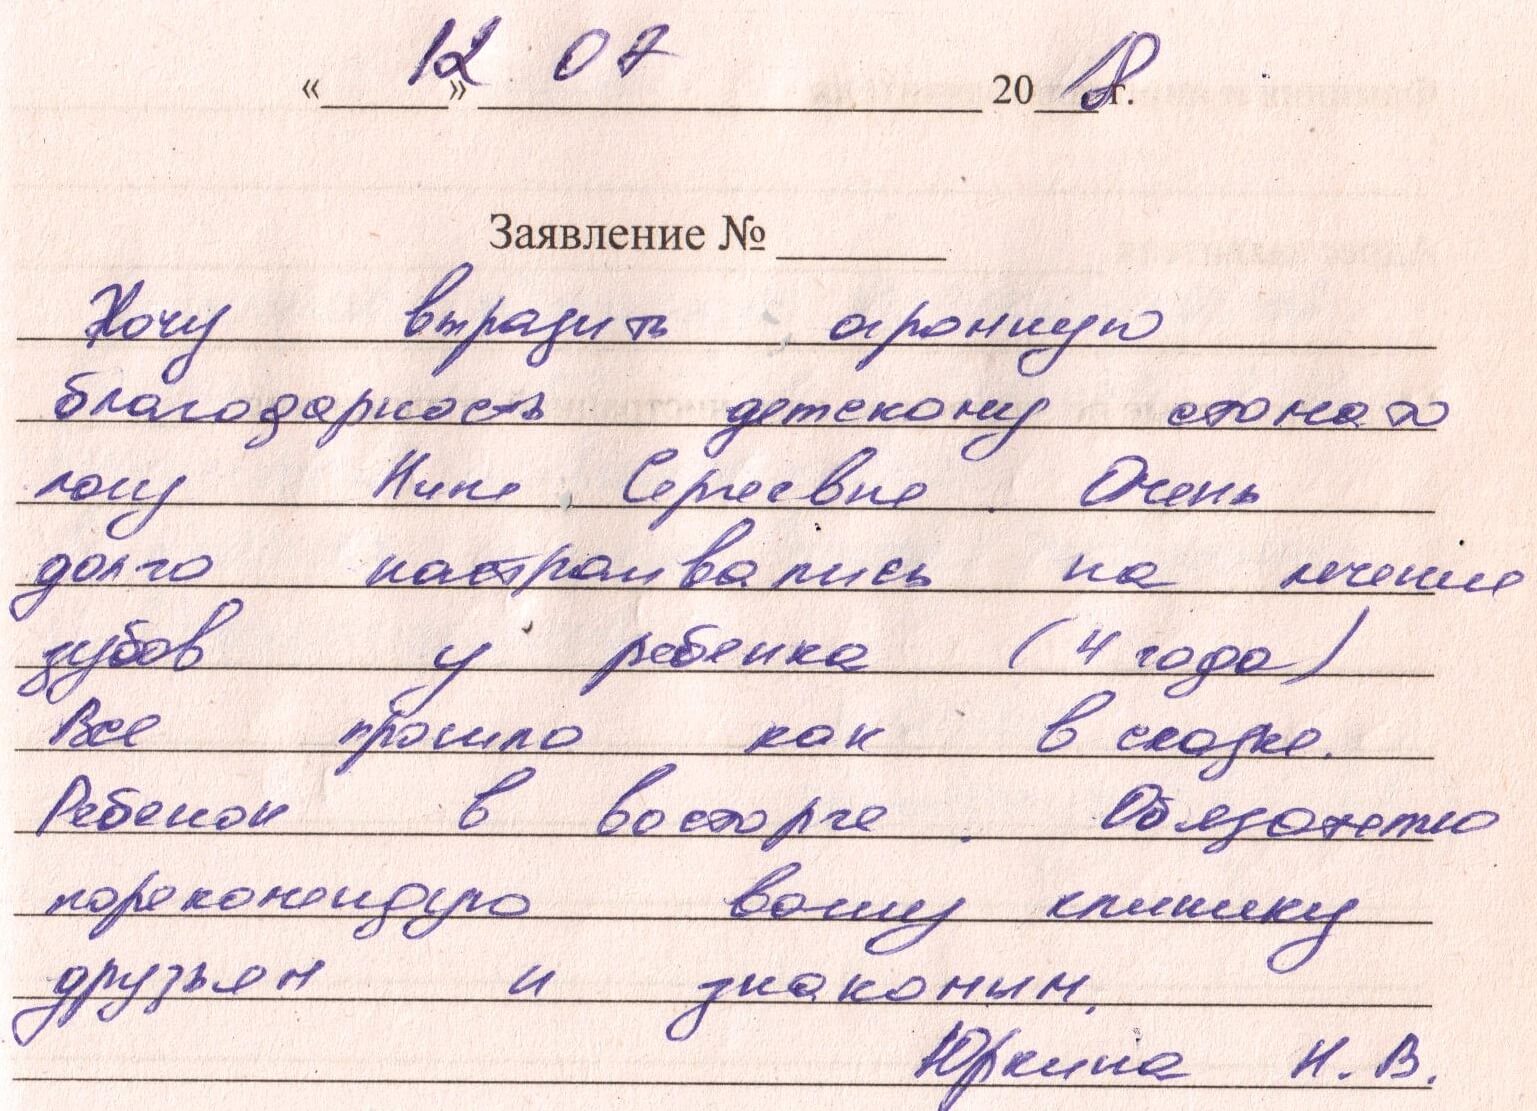 «12» 07 2018 г.
Заявление № ______
Хочу выразить огромную
благодарность детскому стомато
логу Нине Сергеевне. Очень
долго настраивались на лечение
зубов у ребенка (4 года)
Все прошло как в сказке.
Ребенок в восторге. Обязательно
порекомендую вашу клинику
друзьям и знакомым.
Юркина Н. В.